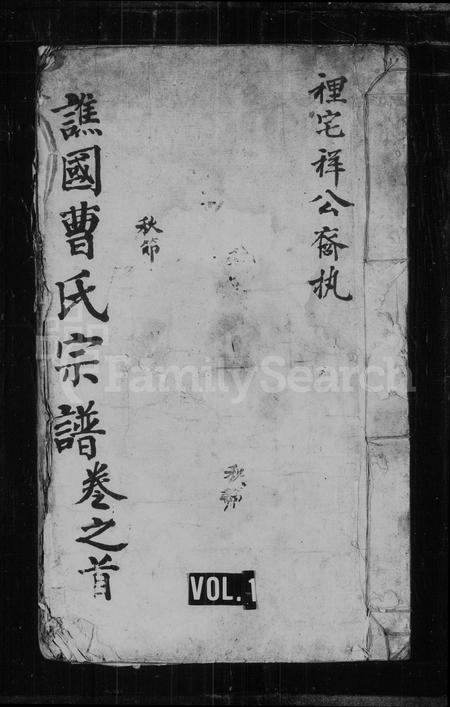 裡宅祥公裔执
譙國曹氏宗譜卷之首
秋節
秋節
VOL. 1
FamilySearch